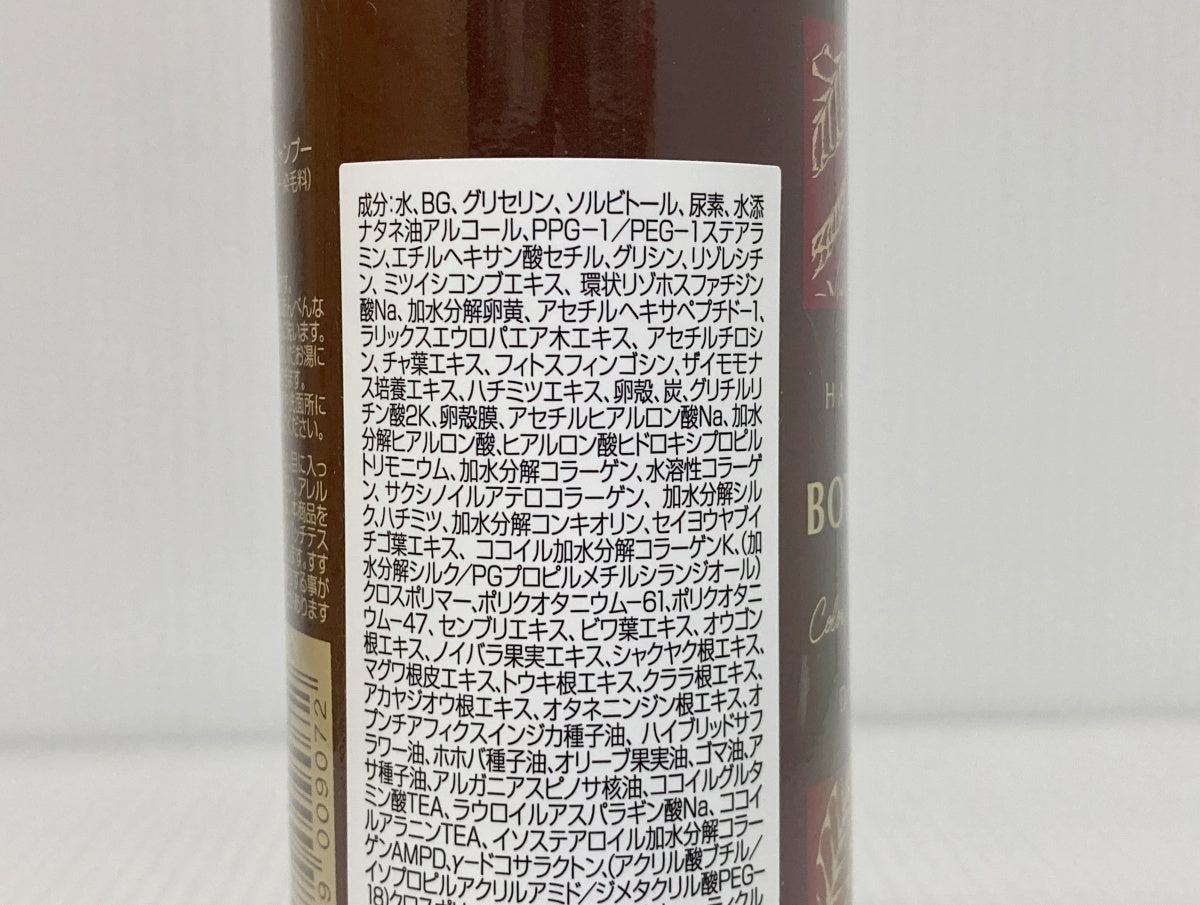 成分:水、BG、グリセリン、ソルビトール、尿素、水添
ナタネ油アルコール、PPG-1/PEG-1ステアラ
ミン、エチルヘキサン酸セチル、グリシン、リゾレシチ
ン、ミツイシコンブエキス、環状リゾホスファチジン
酸Na、加水分解卵黄、アセチルヘキサペプチド-1、
ラリックスエウロパエア木エキス、アセチルチロシ
ン、チャ葉エキス、フィトスフィンゴシン、ザイモモナ
ス培養エキス、ハチミツエキス、卵殻、炭、グリチルリ
チン酸2K、卵殻膜、アセチルヒアルロン酸Na、加水
分解ヒアルロン酸、ヒアルロン酸ヒドロキシプロピル
トリモニウム、加水分解コラーゲン、水溶性コラーゲ
ン、サクシノイルアテロコラーゲン、加水分解シル
ク、ハチミツ、加水分解コンキオリン、セイヨウヤブイ
チゴ葉エキス、ココイル加水分解コラーゲンK、(加
水分解シルク/PGプロピルメチルシランジオール)
クロスポリマー、ポリクオタニウム-61、ポリクオタニ
ウム-47、センブリエキス、ビワ葉エキス、オウゴン
根エキス、ノイバラ果実エキス、シャクヤク根エキス、
マグワ根皮エキス、トウキ根エキス、クララ根エキス、
アカヤジオウ根エキス、オタネニンジン根エキス、オ
プンチアフィクスインジカ種子油、ハイブリッドサフ
ラワー油、ホホバ種子油、オリーブ果実油、ゴマ油、ア
サ種子油、アルガニアスピノサ核油、ココイルグルタ
ミン酸TEA、ラウロイルアスパラギン酸Na、ココイ
ルアラニンTEA、イソステアロイル加水分解コラー
ゲンAMPD、γ-ドコサラクトン、(アクリル酸ブチル/
イソプロピルアクリルアミド/ジメタクリル酸PEG-
18)クロスポリ
ンプー
す。
まんべんな
います。
お湯に
ます。
面所に
ください。
目に入っ
アレル
商品を
ンチテス
す。すす
る事が
あります
9 009072
HA
BO